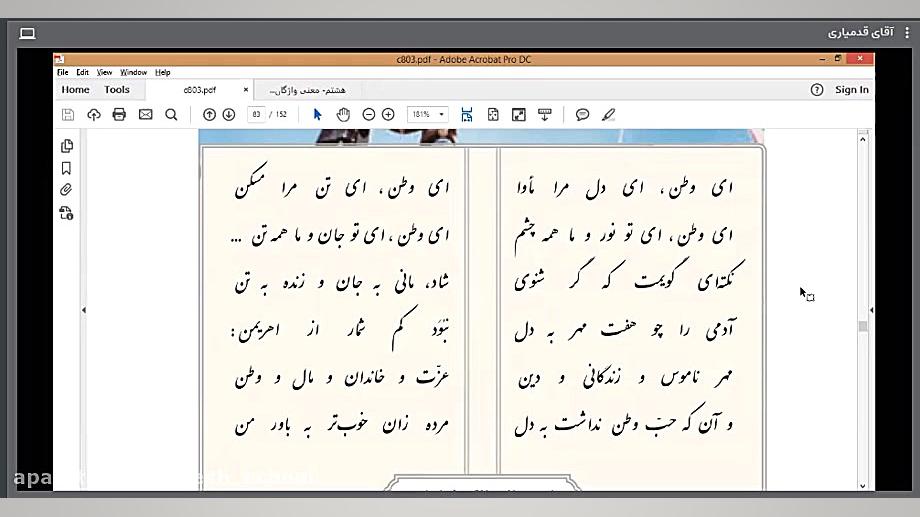 آقای قدمیاری
c803.pdf - Adobe Acrobat Pro DC
File Edit View Window Help
Home Tools c803.pdf × هشتم- معنی واژگان... Sign In
83 / 152 181%
ای وطن، ای دل مرا مأوا ای وطن، ای تن مرا مسکن
ای وطن، ای تو نور و ما همه چشم ای وطن، ای تو جان و ما همه تن ...
نکته‌ای گویمت که گر شنوی شاد، مانی به جان و زنده به تن
آدمی را چو هفت مهر به دل نبْوَد کم شمار از اهریمن:
مهر ناموس و زندگانی و دین عزّت و خاندان و مال و وطن
و آن که حبّ وطن نداشت به دل مرده زان خوب‌تر به باور من